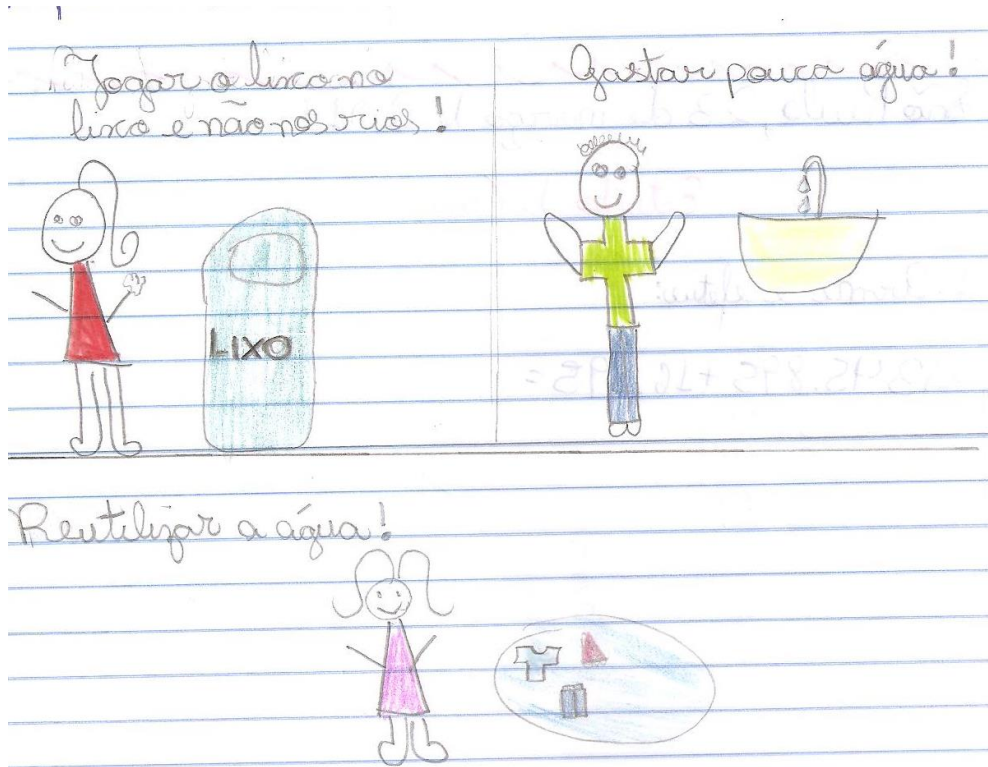 Jogar o lixo no
lixo e não nos rios!
LIXO
Gastar pouca água!
Reutilizar a água!